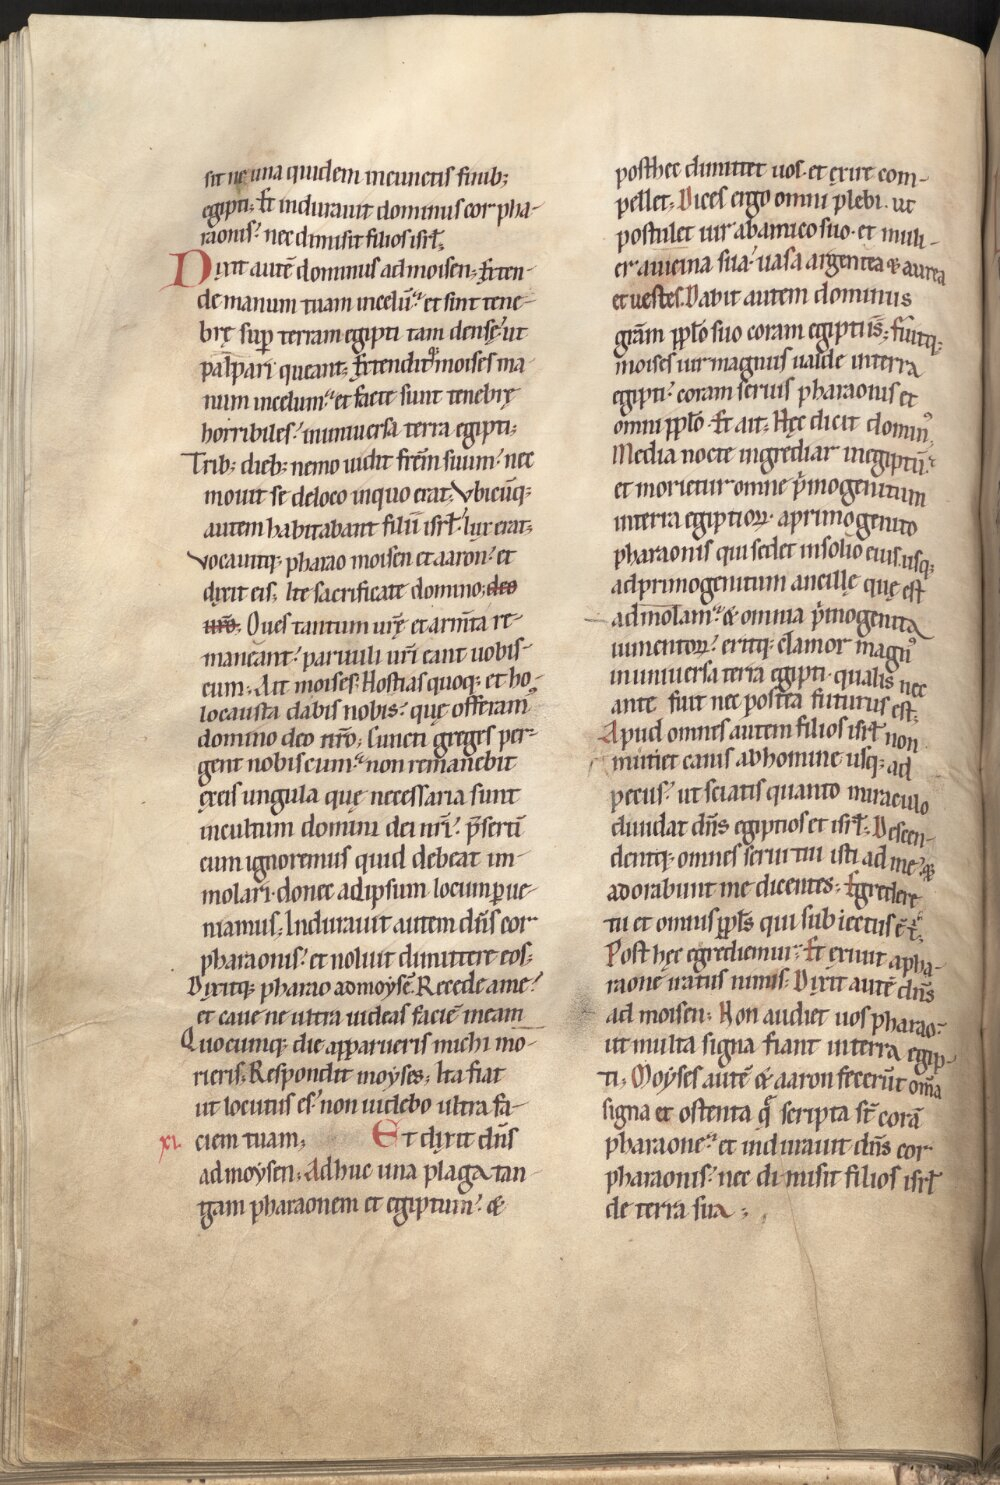 sit ne una quidem incunctis finib;
egipti; Et indurauit dominus cor pha-
raonis? nec dimisit filios isrl̄;
Dixit autē dominus ad moisen; Exten-
de manum tuam incelū? et sint tene-
brę sup̱ terram egipti tam densę? ut
palpari queant; Extenditq̄ moises ma
num incelum? et facte sunt tenebrę
horribiles? inuniuersa terra egipti;
Trib; dieb; nemo uidit frēm suum? nec
mouit se deloco inquo erat; Vbicūq;
autem habitabant filii isrl̄? lux erat;
Vocauitq; pharao moisen et aaron? et
dixit eis; Ite sacrificate domino; deo
uro; Oues tantum urę̄ et armīta re-
maneant? paruuli urī eant uobis-
cum; Ait moises; Hostias quoq; et ho-
locausta dabis nobis? quę offeram᾽
domino deo nrō; Cuncti greges per-
gent nobiscum? non remanebit
ęxeis ungula quę necessaria sunt
incultum domini dei nrī? p̄sertī
cum ignoremus quid debeat im-
molari? donec adipsum locum ꝑue-
niamus; Indurauit autem dn̄s cor
pharaonis? et noluit dimittere eos;
Dixitq; pharao ad moysē; Recede ame?
et caue ne ultra uideas faciē meam
Quocumq; die apparueris michi mo-
rieris; Respondit moyses; Ita fiat
ut locutus es? non uidebo ultra fa-
xi. ciem tuam; Et dixit dn̄s
ad moysen; Adhuc una plaga tan-
gam pharaonem et egiptum? &
posthec dimittet uos? et exire com-
pellet; Dices ergo omni plebi? ut
postulet uir abamico suo? et muli-
er auicina sua? uasa argentea & aurea
et uestes. Dabit autem dominus
grām ppl̄o suo coram egiptiis; fuitq;
moises uir magnus ualde interra
egipti? coram seruis pharaonis et
omni ppl̄o. Et ait; Hęc dicit domin᾽
Media nocte ingrediar inegiptū?
et morietur omne p̄mogenitum
interra egiptioꝝ? aprimogenito
pharaonis qui sedet insolio eius. usq;
adprimogenitum ancillę quę est
admolam? & omnia p̄mogenita
iumentoꝝ? eritq; clamor magn᾽
inuniuersa terra egipti? qualis nec
ante fuit nec postea futurus est;
Apud omnes autem filios isrl̄ non
mutiet canis abhomine usq; ad
pecus? ut sciatis quanto miraculo
diuidat dn̄s egiptios et isrl̄; Descen-
dentq; omnes serui tui isti ad me? &
adorabunt me dicentes; Egredere
tu et omnis ppl̄s qui subiectus ē t̄;
Post hęc egrediemur; Et exiuit apha-
raone iratus nimis; Dixit autē dn̄s
ad moisen; Non audiet uos pharao?
ut multa signa fiant interra egip-
ti; Moyses autē & aaron fecerūt omīa
signa et ostenta q̄ scripta st̄ corā
pharaone? et indurauit dn̄s cor
pharaonis? nec dimisit filios isrl̄
de terra sua;